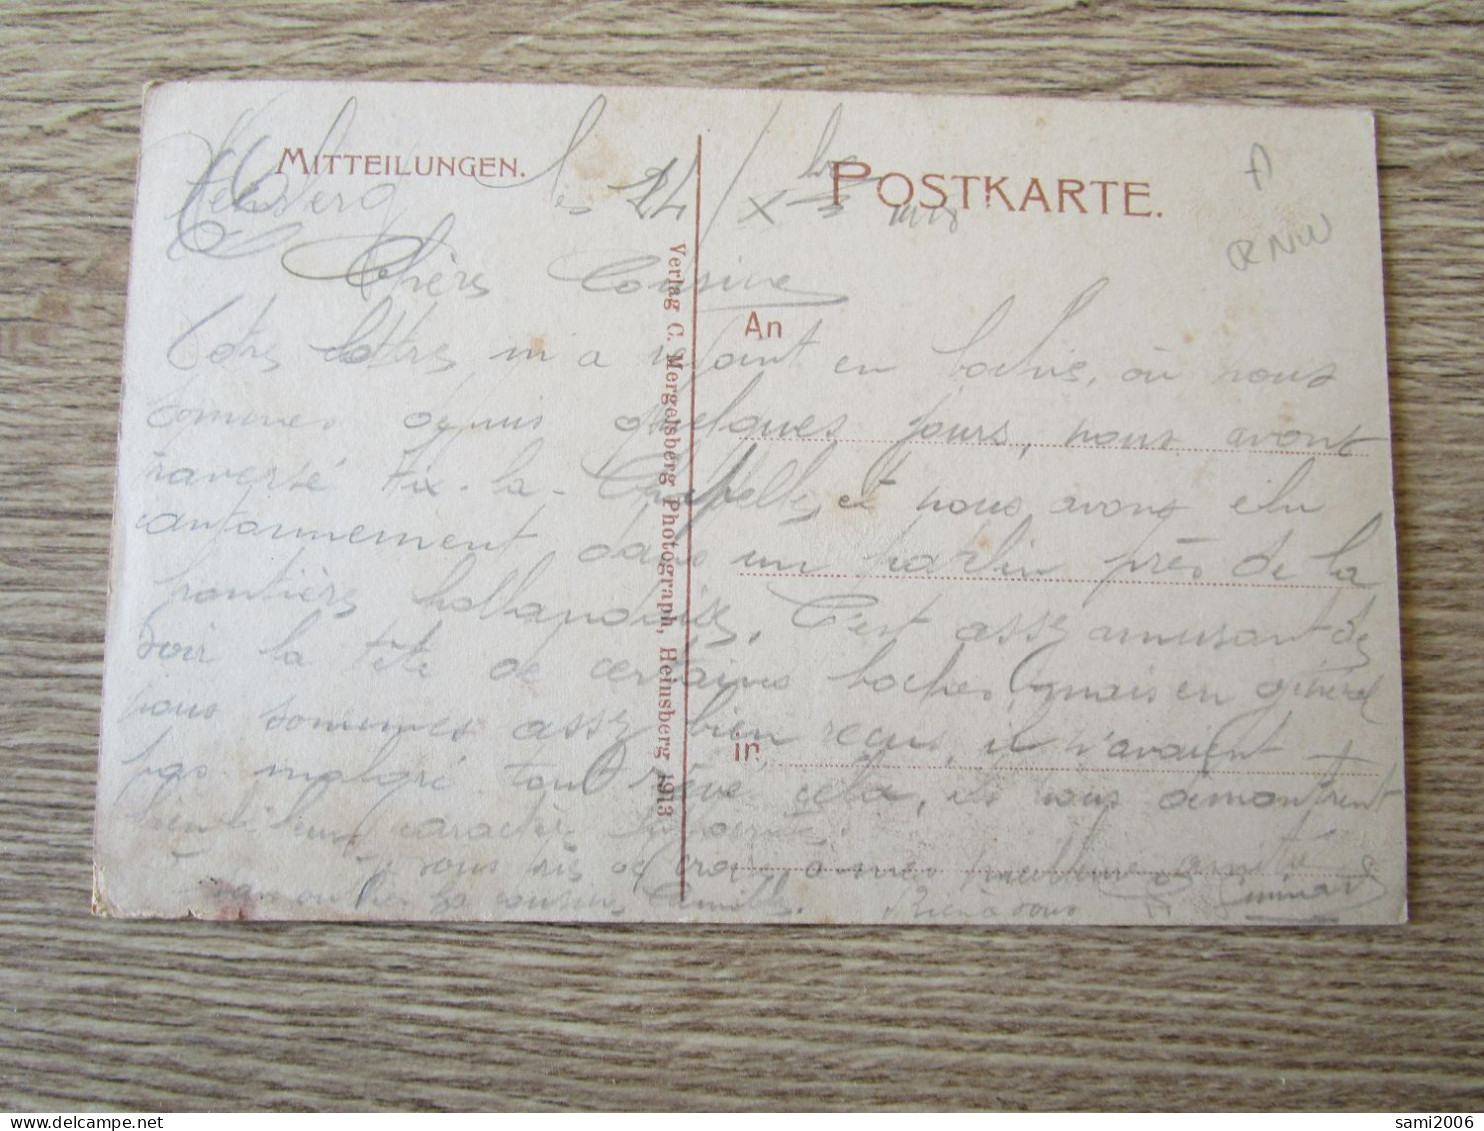 MITTEILUNGEN.
POSTKARTE.
A
RNW
le 24 / Xbre 1918
Chère Cousine
An
Votre lettre m'a rejoint en bochie, où nous
sommes depuis quelques jours, nous avont
traversé Aix-la-Chapelle, et nous avons élu
cantonnement dans un patelin près de la
frontière hollandaise. C'est assez amusant de
voir la tête de certains boches, mais en général
nous sommes assez bien reçus, il n'avaient
in
pas malgré tout rêvé cela, ils nous démontrent
bien leur caractère
vous de croire a mes meilleure amitié
oublier la cousine Camille. Bien a vous
Verlag C. Mergelsberg Photograph, Heinsberg 1913
sami2006